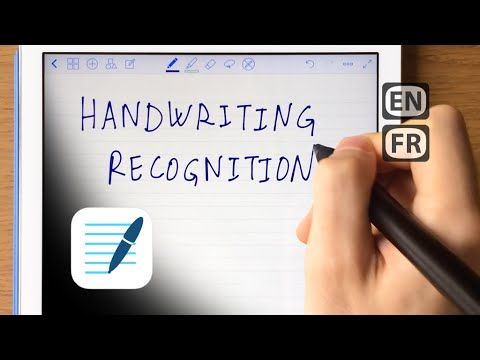 HANDWRITING
EN
RECOGNITION
FR